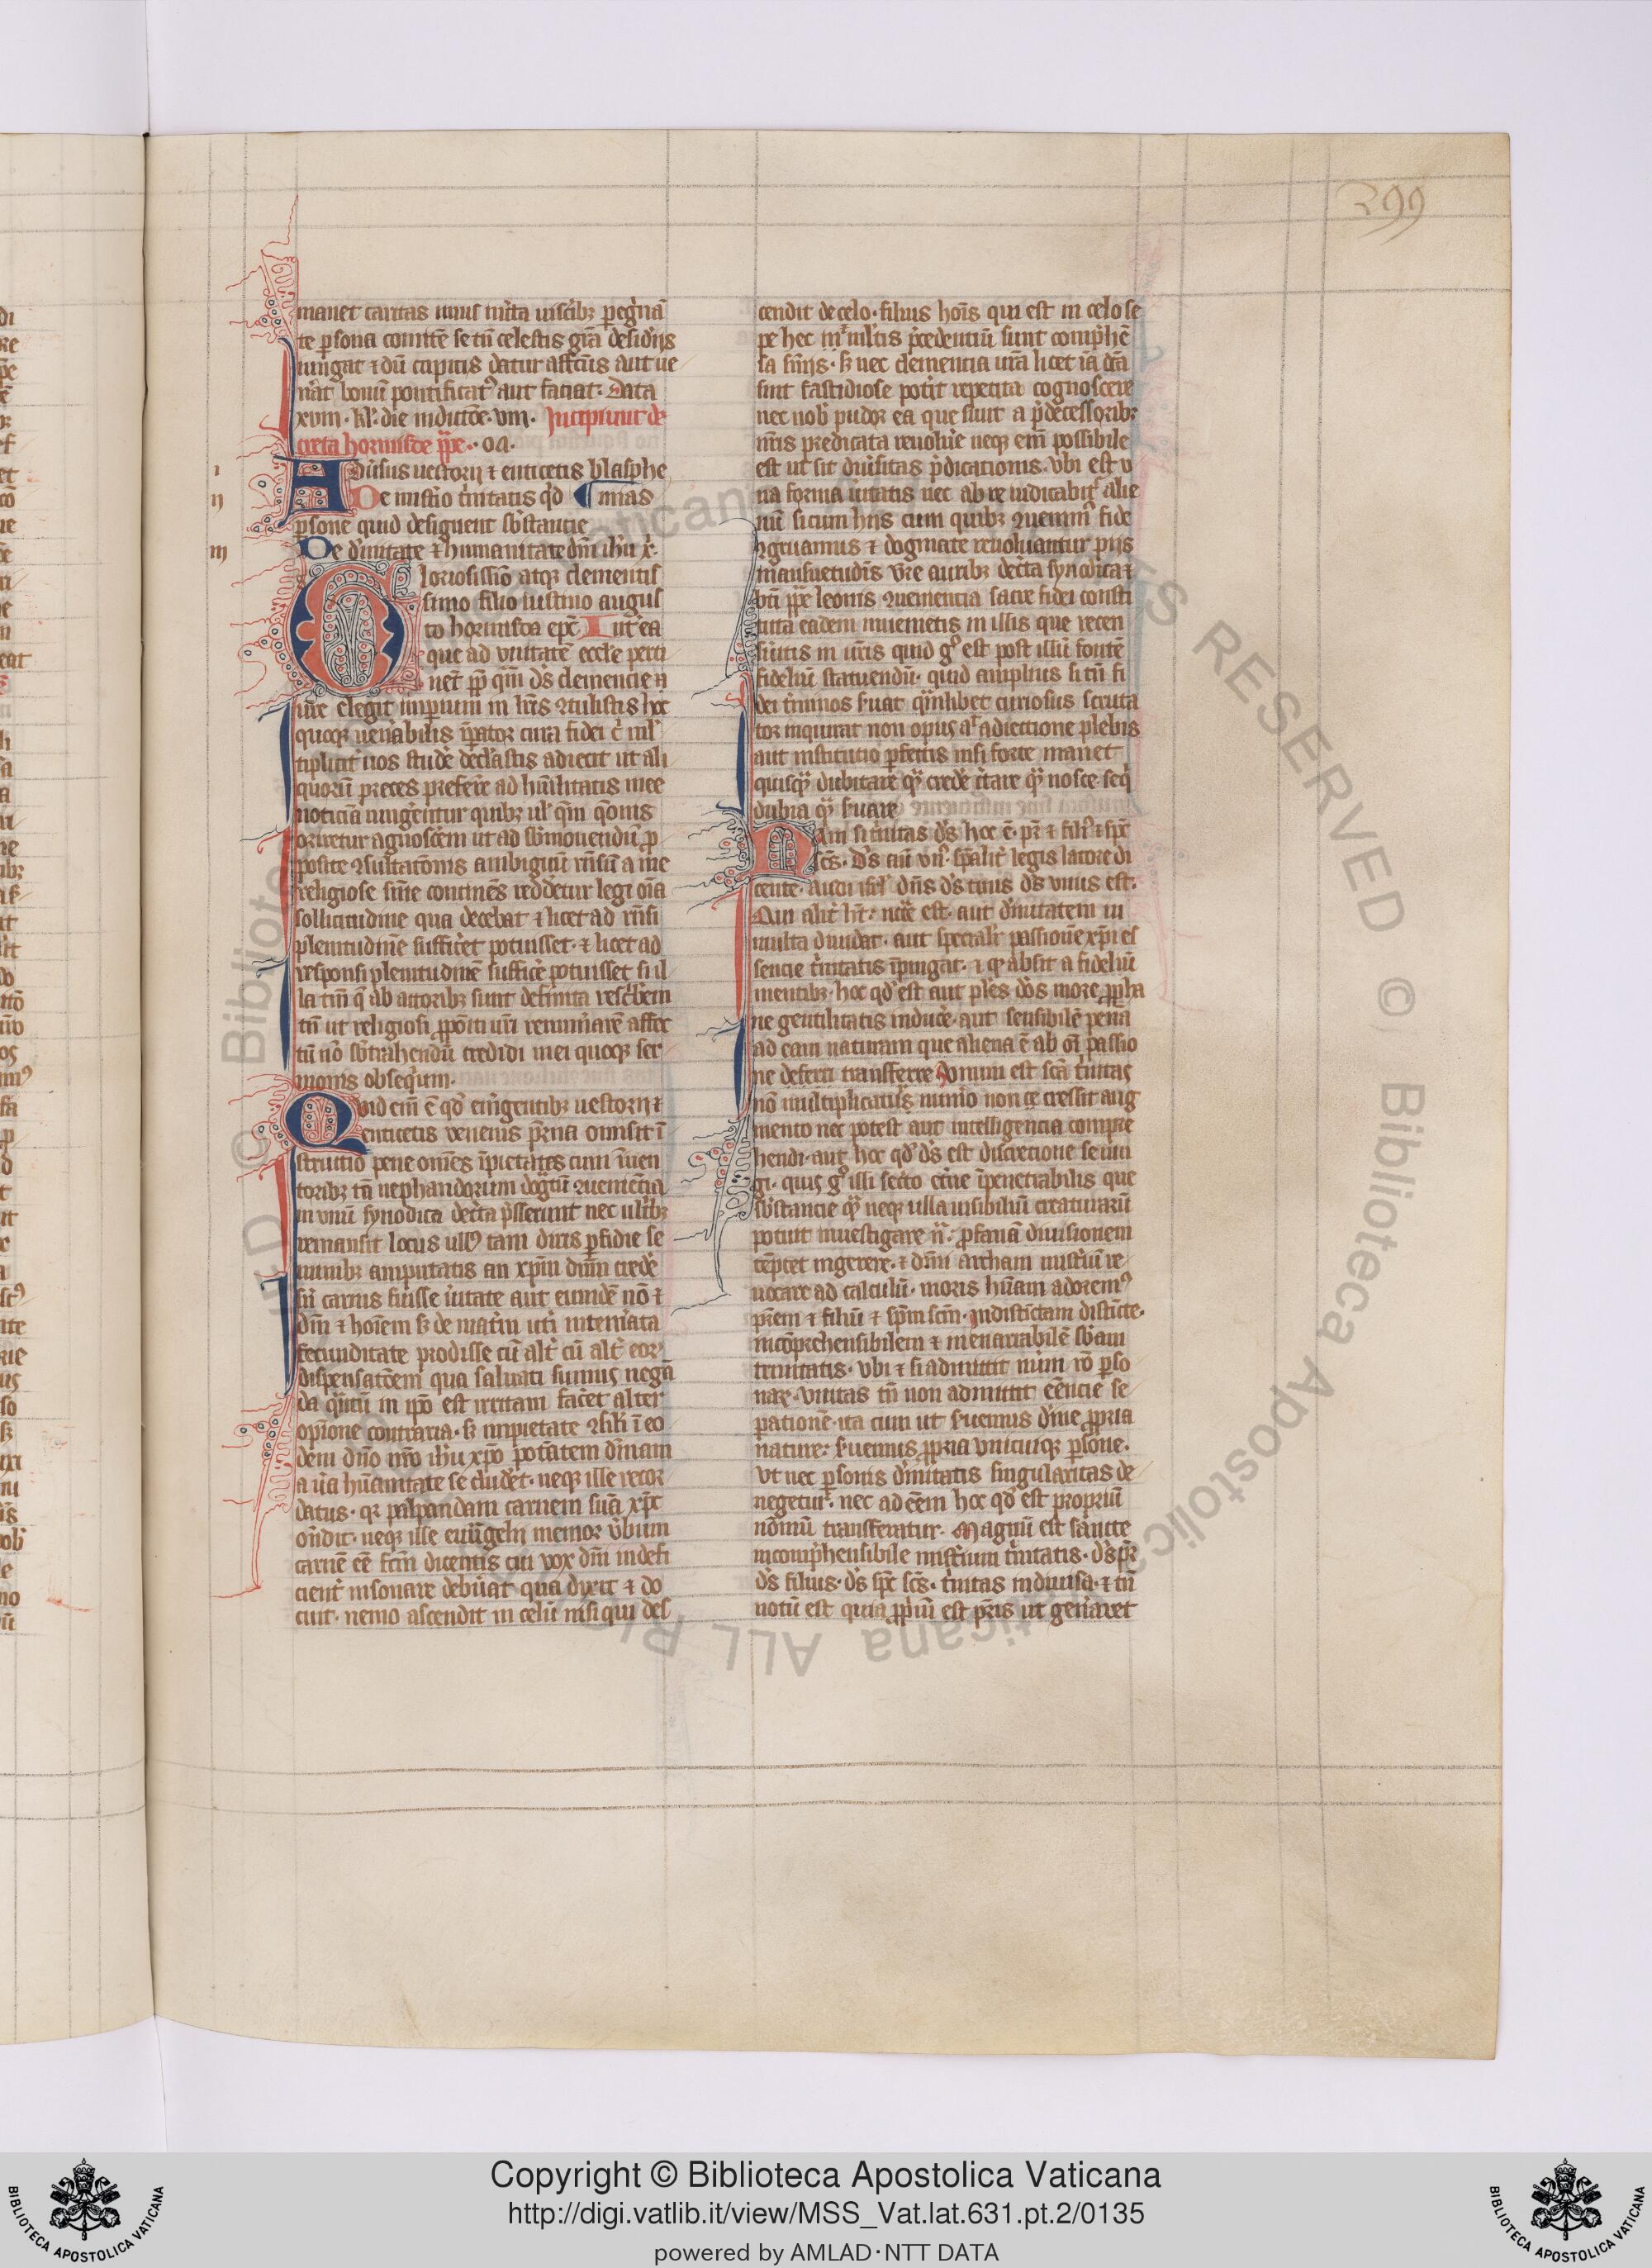 299
manet caritas unius iuxta uiscib; p̲egͥnā
te p̲sona comitē se tn̄ celestis grā desid'ijs
iungat ⁊ dū cupitis datur affectus aut ue
n̄at bonū pontificatꝰ aut faciat. Data
xviii. kl. die indictōe. viii. Incipiunt de
creta hormisde pp̄e.
i
Aduīsus nestorij ⁊ euticetis blasphe
ii
De mist̄io t̄initatis qd ¶ mias
p̲sone quid designent sb̄stantie
iii
De d'initate ⁊ humanitate dn̄i ih̄u x.
Gloriosissīo atq; clementis
simo filio iustino augus
to hormisda ep̄c Int̄ ea
que ad vnitatē eccl'e perti
net̄ pp̄ qm̄ d's clementie
ur̄e elegit imp̲ium in hr̄is ꝯtulistis hoc
quoq; uen̄abilis īpator cura fidei
tiplicit̄ uos stude decl'astis adiecit ut ali
quorū preces prefer̄e ad hūilitatis mee
noticiā iungentur quib; ul' qm̄ qōnis
oriretur agnoscem ut ad sb̄mouendū p̲
posite ꝯsultatōnis ambiguū rn̄sū a me
religiose sn̄ie continēs redd'etur legi oīa
sollicitudine qua decebat ⁊ licet ad rn̄si
plenitudinē suffic̄et potuisset. ⁊ licet ad
responsi plenitudinē suffic̄e potuisset si il
la tm̄ q̄ ab auctorib; sunt definita resc̄bem
tn̄ ut religiosi p̲pōiti ur̄i remun̄arē affec
tū nō sb̄trahendū credidi mei quoq; ser
monis obseqͥum.
Quid em̄ ē qd em̄gentib; nestorij ⁊
euticetis venenis p̄rna omisit ī
structio pene om̄es īpietates cum īuen
torib; tā nephandorum dogtū ꝯuemētia
in vnū synodica dec̄ta p̄sserunt nec ultib;
remansit locus ullꝰ tam diris p̲fidie se
minib; amputatis an xp̄m dn̄m cred'e
fn̄ carnis fuisse ūitate aut eundē nō ⁊
dm̄ ⁊ hoīem s; de matīni ut̄i intem̄ata
fecunditate prodisse cū alt̄ cū alt̄ eoꝝ
dispensatōem qua saluati sumus negā
da qͣntū in ip̄o est irritam fac̄et alter
opīone contraria. s; impietate ꝯsīli ī eo
dem dn̄o nr̄o ih̄u xp̄o potātem dīnam
a ūa hūanitate se clud'et. neq; ille recor
datus. qꝛ palpandam carnem suā xp̄c
on̄dit. neq; ille euūgelij memor v̄bum
carnē eē fcm̄ dicentis cui vox dn̄i indefi
cient̄ insonare debūat qua dixit ⁊ do
cuit. nemo ascendit in celū nisi qui des
cendit de celo. filius hoīs qui est in celo se
pe hec mͬ multis p̄cedentiū sunt comp̄hē
sa sn̄ijs. s; nec clementia ur̄a licet iā dc̄a
sint fastidiose pot̄it repetita cognoscere
nec nob̄ pudor ea que sūt a p̄decessorib;
nr̄is predicata reuolue neq; em̄ possibile
est ut sit du̅sitas p̄dicationis. vbi est v
na forma ūitatis nec ab re iudicabiͬ alie
nū si cum hijs cum quib; ꝯuenimꝰ fide
ꝯgruamus ⁊ dogmate reuoluantur pijs
mansuetudīs vr̄e aurib; dec̄ta synodica ⁊
bt̄i pp̄e leonis ꝯuenientia sacre fidei consti
tuta eadem inuenietis in illis que recen
sūitis in ur̄is quid gͦ est post illū fontē
fidelū statuendū. quid amplius si tn̄ fi
dei t̄minos s̄uat qͣmlibet curiosius scruta
tor inquirat non opus aͬ adiectione plebis
aut institutio p̲fectis nisi forte manet
quisqͣ dubitare qͣ cred'e c̄tare qͣ nosce seqͥ
dubia qͣ s̄uare
Nam si t̄nitas d's hoc ē. pr̄ ⁊ filꝰ ⁊ sp̄c
sc̄s. D's aūt vnꝰ. sp̄alit̄ legis latore di
cente. audi isrl' dn̄s d's tuus d's vnus est.
Qui alit̄ hēt. nc̄ce est. aut d'initatem in
multa diuidat. aut specialit̄ passionē xp̄i es
sencie t̄initatis īpingat. ⁊ qꝛ absit a fideliū
mentib;. hoc qd est aut pl'es d'os more p̲pha
ne gentilitatis induce. aut sensibilē pena
ad eam naturam que aliena ē ab oī passio
ne defert transferre. Vnum est scā t̄initas
nō multiplicatuͬ num̄o non ce crescit aug
mento nec potest aut intelligencia compre
hendi. aut hoc qd d's est discretione seiun
gi. quis gͦ illi secͦto et̄ne īpenetrabilis que
sb̄stancie qͣ neq; ulla inuisibiliū creaturarū
potuit inuestigare nͣ. p̲fanā diuisionem
tēptet ingerere. ⁊ dīni archam mist̄iū re
uocare ad calculū. moris hūam adoremꝰ
pr̄em ⁊ filiū ⁊ sp̄m scm̄. indistīctam distīcte.
incōprehensibilem ⁊ inenarrabilē sb̄am
trinitatis. vbi ⁊ si admittit num̄ rō p̲so
naꝝ. vnitas tn̄ non admittit eēncie se
parationē. ita cum ut s̄uemus d'īne p̲pria
nature. s̄uemus p̲pria vnicuiq; p̲sone.
vt nec p̲sonis d'initatis singularitas de
negetur. nec ad eēm hoc qd est propriū
nōmū transferatur. Magnū est sancte
incomp̄hensibile mist̄ium t̄initatis. d's pr̄
d's filius. d's sp̄c sc̄s. t̄initas indiuisa. ⁊ tn̄
notū est quia p̲p̲iū est pr̄is ut gen̄aret
© Biblioteca Apostolica Vaticana ALL RIGHTS RESERVED
Copyright © Biblioteca Apostolica Vaticana
http://digi.vatlib.it/view/MSS_Vat.lat.631.pt.2/0135
powered by AMLAD·NTT DATA
BIBLIOTECA APOSTOLICA VATICANA
BIBLIOTECA APOSTOLICA VATICANA